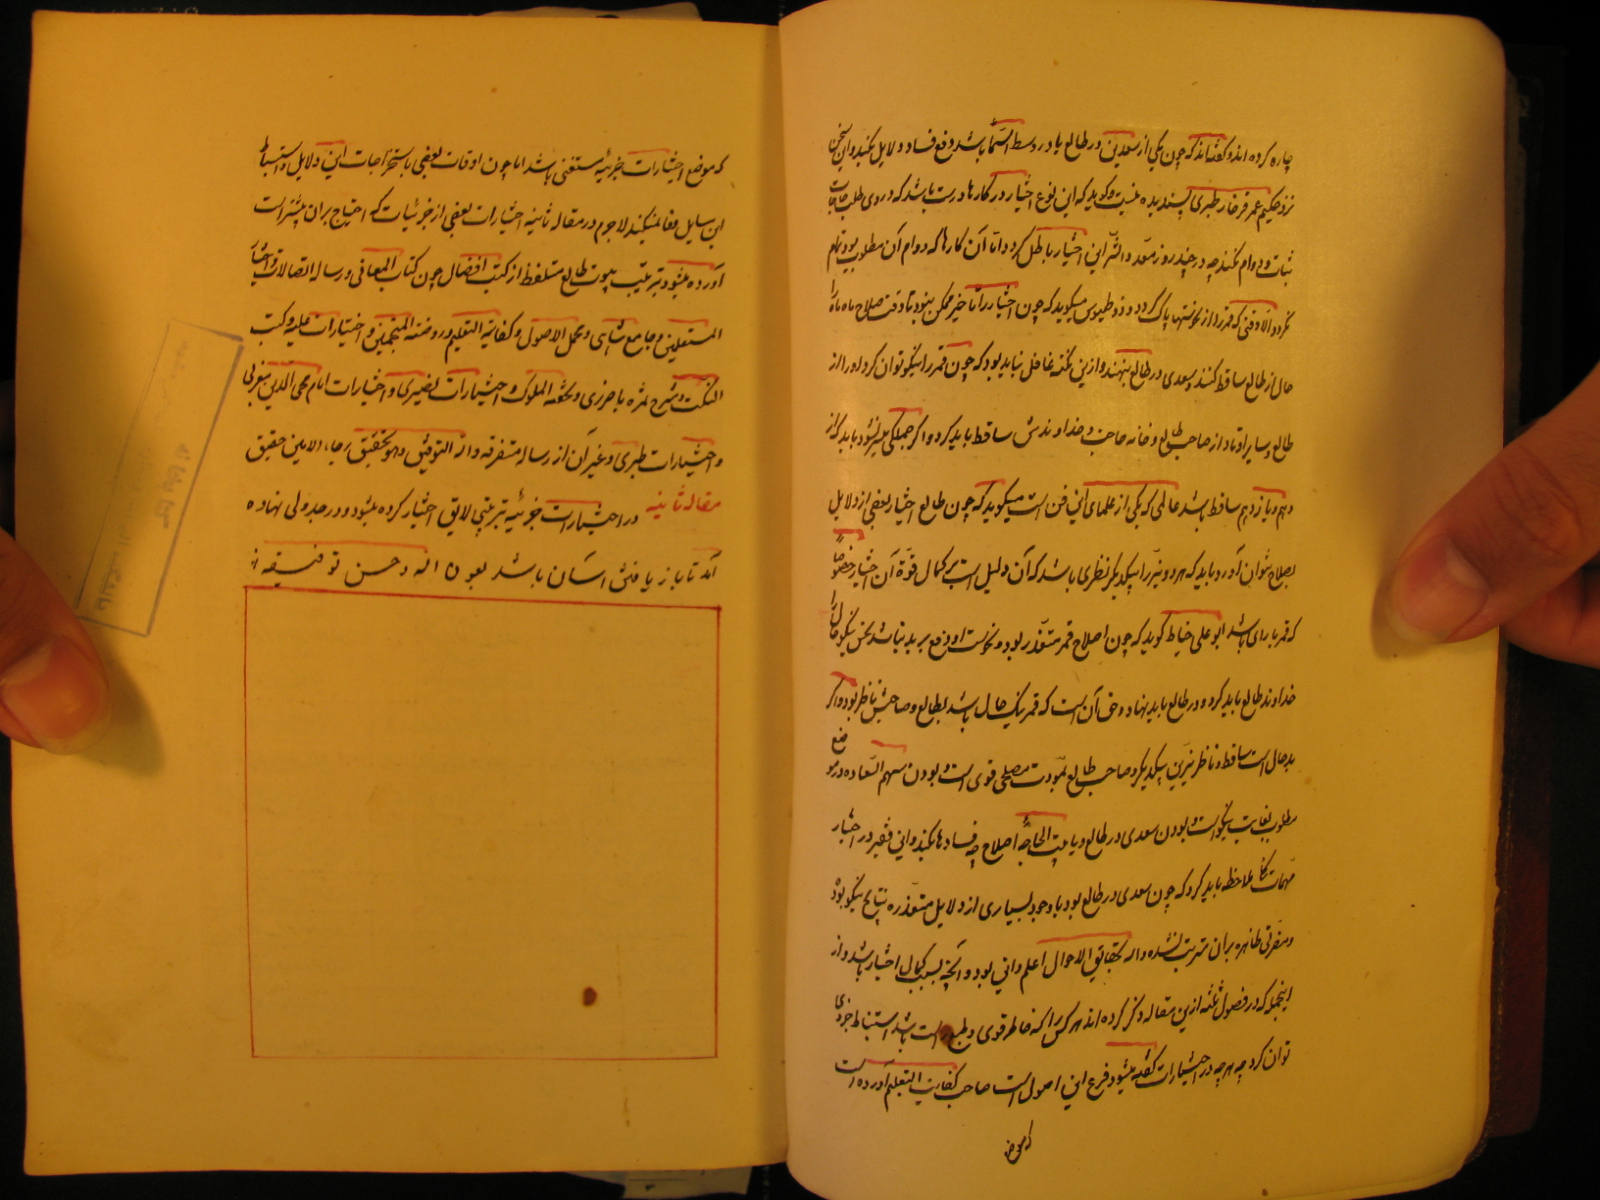 چاره کرده اند و گفته‌اند که چون یکی از سعدین در طالع یا در وسط السما باشد دفع فساد دلایل بکند و این سخن
نزد حکیم عمر فرخان طبری پسندیده نیست و گوید که این نوع اختیار در کارها درست باشد که در وی طلب حاجات
ثبات و دوام نکنند چه در چند روز معدود اثر این اختیار باطل گردد اما آن کارها که دوام آن مطلوب بود تمام
نگردد الا وقتی که قمر را از نحوستها پاک گردد و ذوطیوس میگوید که چون اختیار را تاخیر ممکن نبود تا وقت صلاح ماه ماه را
حال از طالع ساقط کنند و سعدی در طالع بنهند و ازین نکته غافل نباید بود که چون قمر را نیکو نتوان کرد او را از
طالع و سایر اوتاد از صاحب طالع و خانه حاجت و خداوندش ساقط باید کرد و اگر جملگی میسر نشود باید که از
دهم و یازدهم ساقط باشد عالمی که یکی از علمای این فن است میگوید که چون طالع اختیار بعضی از دلایل
بصلاح نتوان آورد باید که هر دو نیر را بیکدیگر نظری باشد که آن دلیل است بکمال قوة آن اختیار خصوصا
که قمر بارای باشد ابو علی خیاط گوید که چون اصلاح قمر متعذر بود و نحوست او دفع برید نباشد نحس نیکو حال را
خداوند طالع باید کرد و در طالع باید نهاد و حق آن است که قمر نیک حال باشد بطالع و صاحبش ناظر بود و اگر
بد حال است ساقط و ناظر نیرین بیکدیگر و صاحب طالع بمودت مصلحی قوی است و بودن سهم السعاده در موضع
مطلوب بغایت نیکوست و بودن سعدی در طالع و یا بیت الحاجه اصلاح چه فسادها بکند و این فقیر در اختیار
مهمات ملاحظه باید کرد که چون سعدی در طالع بود با وجود بسیاری از دلایل متعذره نتایج نیکو بود
و مضرتی ظاهر بران مترتب نشده والله بحقایق الاحوال اعلم و این بود و آنچه بسبب کمال اختیار باشد و از
اینجمله که در فصول ثلثه ازین مقاله ذکر کرده اند هر کس را که خاطر قوی و طبع راست باشد استنباط جزوی
توان کرد چه هر چه در اختیارات گفته میشود فرع این اصول است صاحب کفایت التعلیم آورده است
که موضع
که موضع اختیارات جزییه مستغنی باشد اما چون اوقات بعضی باستخراجات این دلایل و استنباط
این مسایل وفا نمیکند لاجرم در مقاله ثانیه اختیارات بعضی از جزئیات که احتیاج بران بیشتر است
آورده میشود بترتیب بیوت طالع ملتقط از کتب افضال چون کتاب المعانی و رساله اتصالات و اختیار
المستعلین و جامع شاهی و مجمل الاصول و کفایة التعلیم و روضة المنجمین و اختیارات علیه و کتب
النکت و شرح ثمره باخرزی و تحفه الملوک و اختیارات نصیری و اختیارات امام محی الدین مغربی
و اختیارات طبری و غیر آن از رساله متفرقه والله التوفیق و هو بتحقیق رجاء الاملین حقیق
مقاله ثانیه در اختیارات جزئیه بترتیبی لایق اختیار کرده میشود و در جدولی نهاده
آمد تا باز یافتن اسان باشد بعون الله و حسن توفیقه